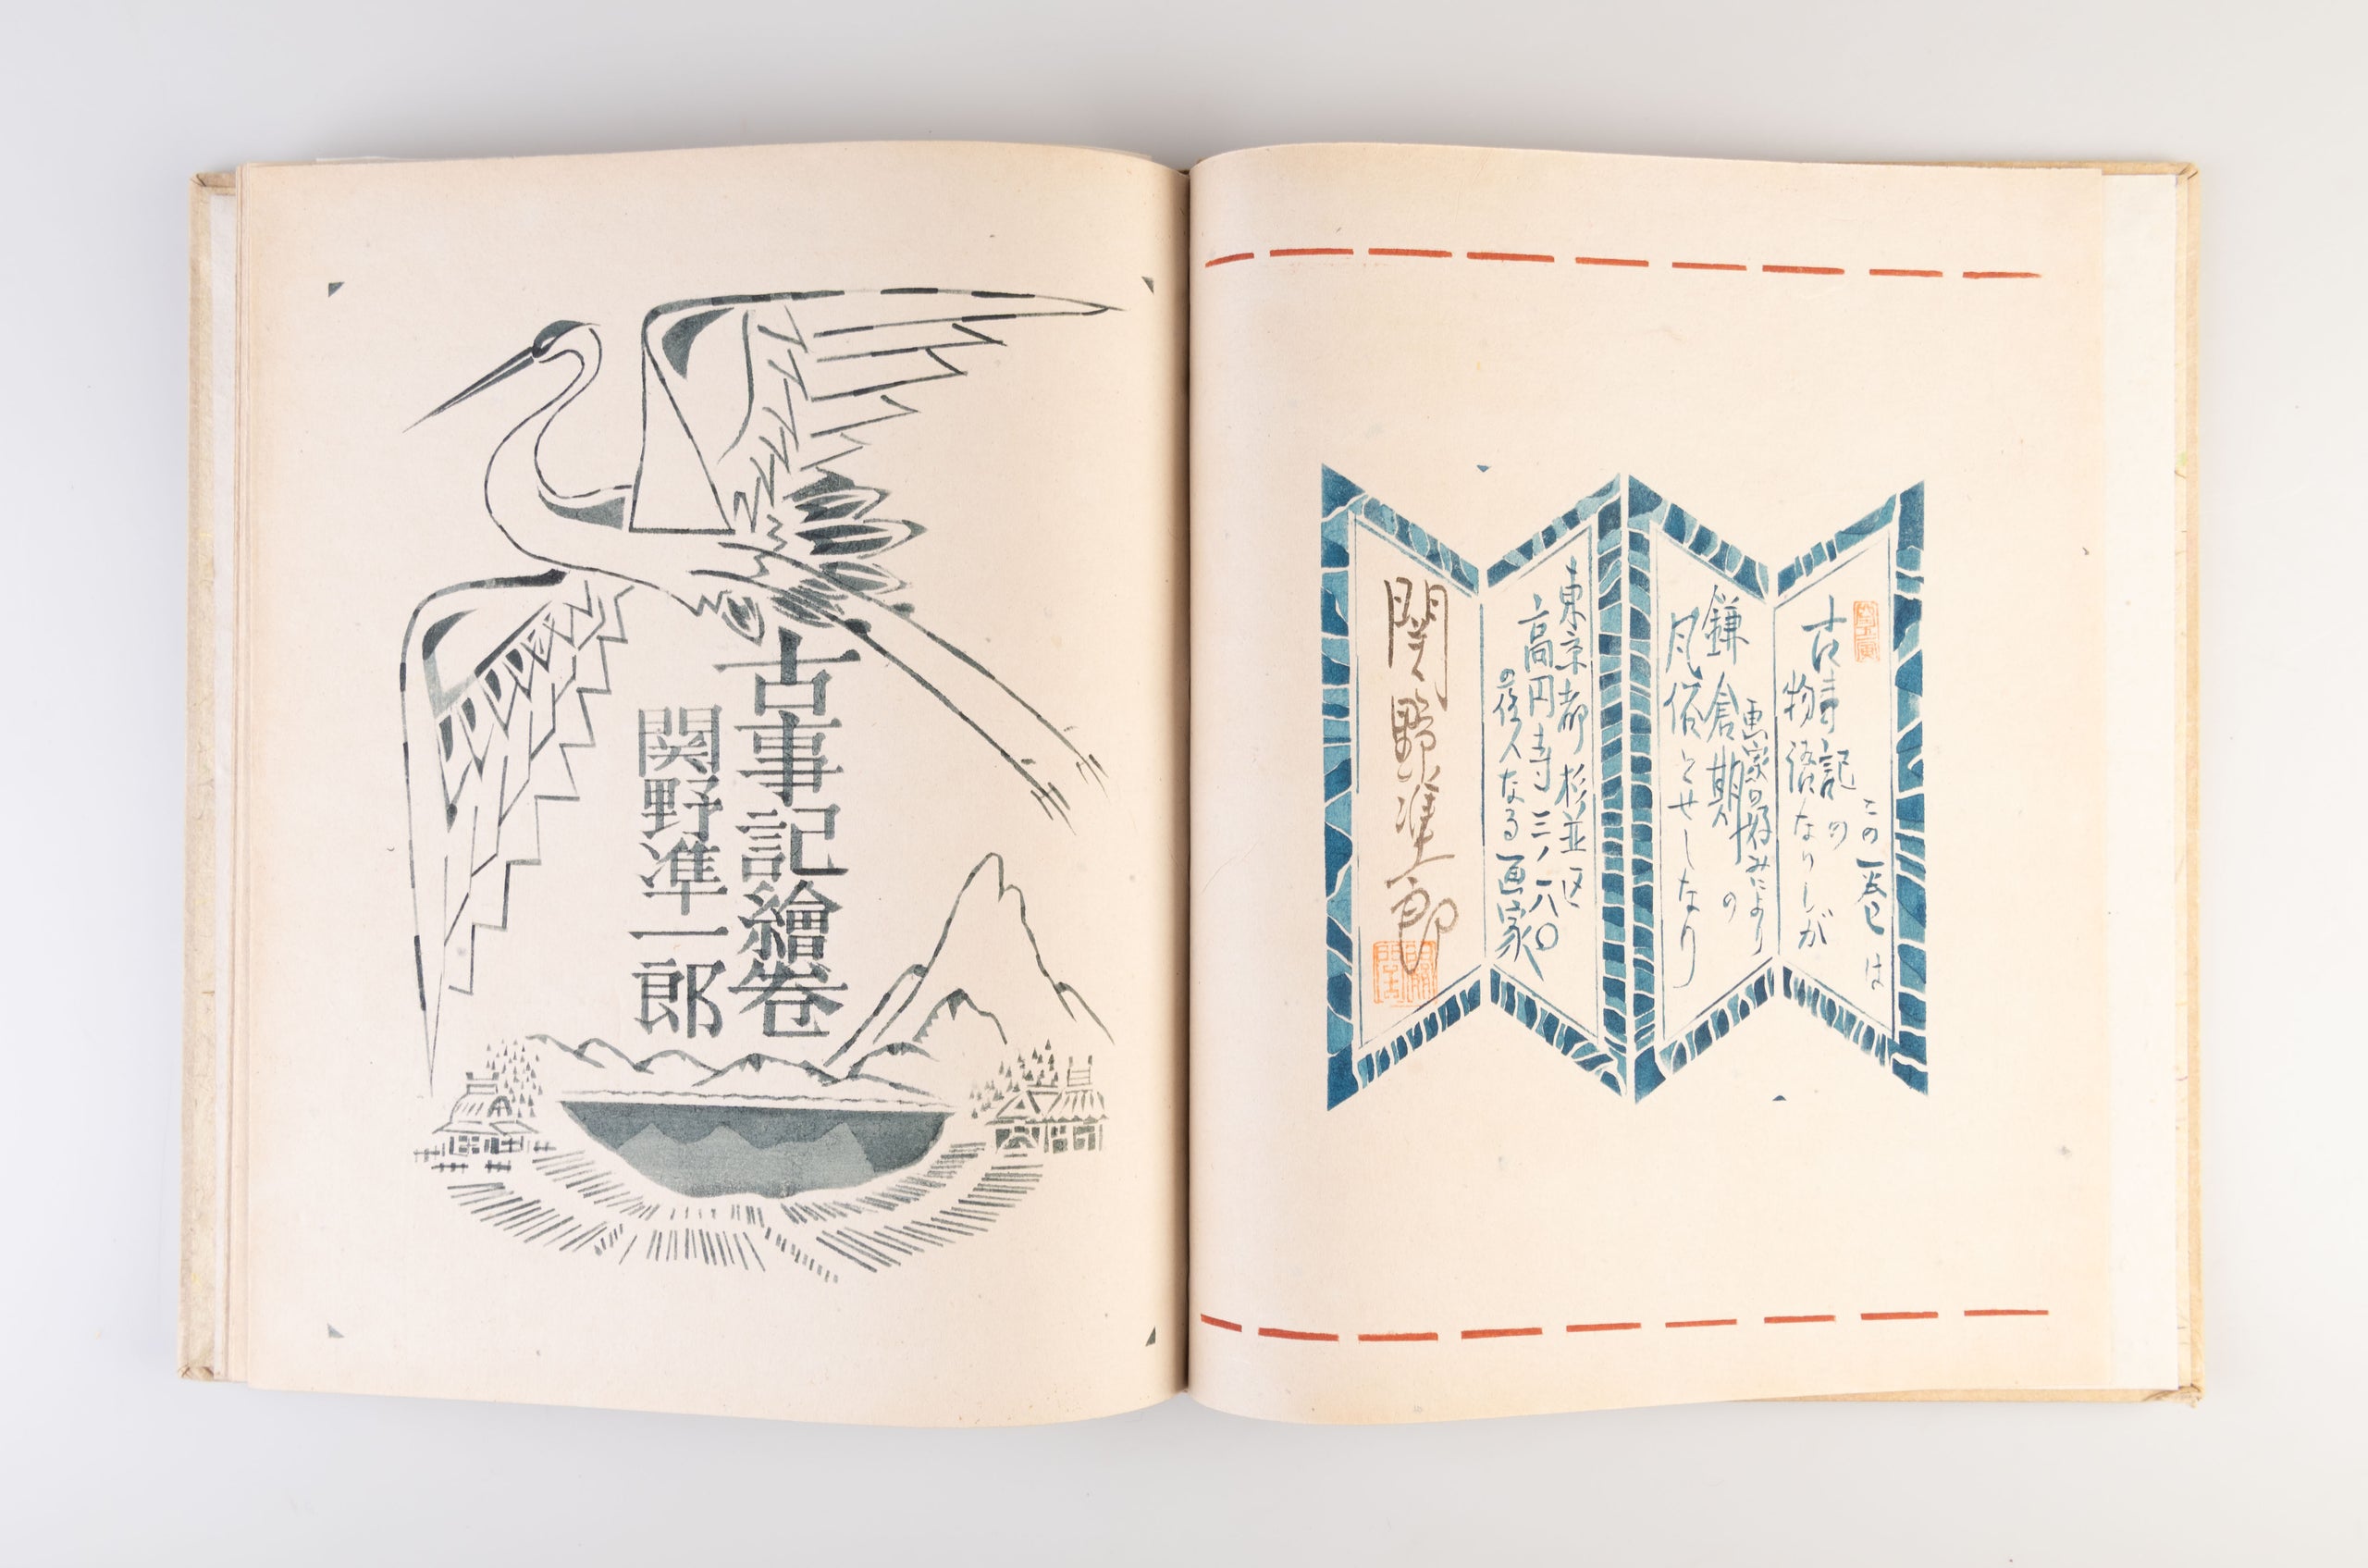 古事記繪巻
関野準一郎
この一巻は
古事記の
物語なりしが
画家の好みにより
鎌倉期の
風俗とせしなり
東京都杉並区
高円寺三ノ一八〇
の住人なる画家
関野準一郎